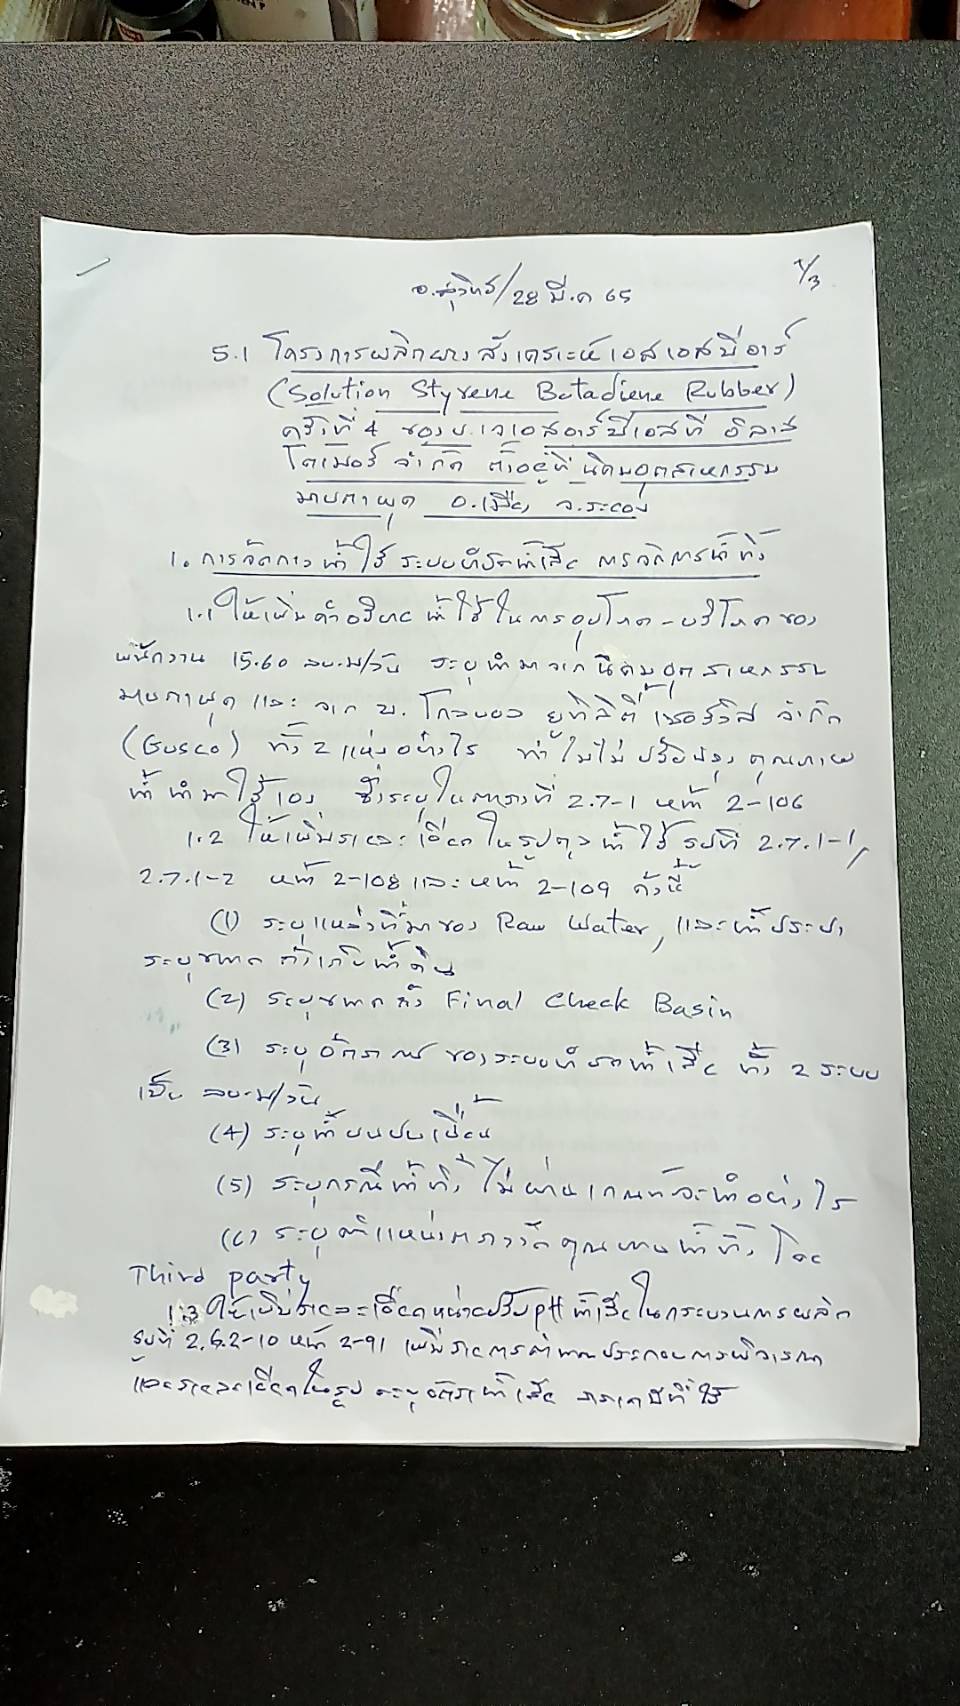 1/3
อ.สุวิทย์/28 มี.ค 65
5.1 โครงการผลิตยางสังเคราะห์เอสเอสบีอาร์
(Solution Styrene Butadiene Rubber)
ครั้งที่ 4 ของ บ.เจเอสอาร์บีเอสที อิลาส
โตเมอร์ จำกัด ตั้งอยู่ที่นิคมอุตสาหกรรม
มาบตาพุด อ.เมือง จ.ระยอง
1. การจัดการน้ำใช้ ระบบบำบัดน้ำเสีย การจัดการน้ำทิ้ง
1.1 ให้เพิ่มคำอธิบาย น้ำใช้ในการอุปโภค-บริโภคของ
พนักงาน 15.60 ลบ.ม/วัน ระบุนำมาจากนิคมอุตสาหกรรม
มาบตาพุด และ จาก บ. โกลบอล ยูทิลิตี้ เซอร์วิส จำกัด
(Gusco) ทั้ง 2 แห่งอย่างไร ทำไมไม่ปรับปรุงคุณภาพ
น้ำ นำมาใช้เอง ซึ่งระบุในตารางที่ 2.7-1 หน้า 2-106
1.2 ให้เพิ่มรายละเอียดในรูปดุลน้ำใช้ รูปที่ 2.7.1-1,
2.7.1-2 หน้า 2-108 และหน้า 2-109 ดังนี้
(1) ระบุแหล่งที่มาของ Raw Water, และน้ำประปา
ระบุขนาด ถังเก็บน้ำดิบ
(2) ระบุขนาดถัง Final Check Basin
(3) ระบุอัตรา ของระบบบำบัดน้ำเสีย ทั้ง 2 ระบบ
เป็น ลบ.ม/วัน
(4) ระบุน้ำฝนปนเปื้อน
(5) ระบุกรณีน้ำทิ้งไม่ผ่านเกณฑ์จะทำอย่างไร
(6) ระบุตำแหน่งตรวจวัดคุณภาพน้ำทิ้ง โดย
Third party
1.3 ให้เพิ่มรายละเอียดหน่วยปรับ pH น้ำเสียในกระบวนการผลิต
รูปที่ 2.6.2-10 หน้า 2-91 เพิ่มรายการคำนวณประกอบการพิจารณา
และรายละเอียดในรูป ระบุอัตราน้ำเสีย สารเคมีที่ใช้